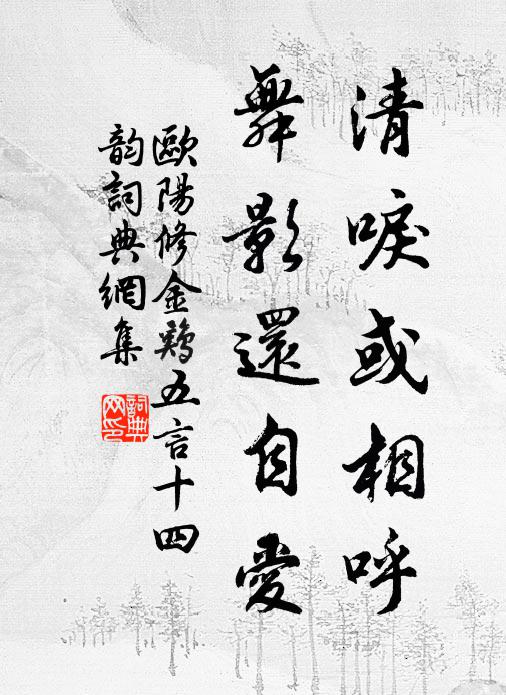 清唳或相呼
舞影還自愛
歐陽修金鷄五言十四
韵詞典網集
詞典网印